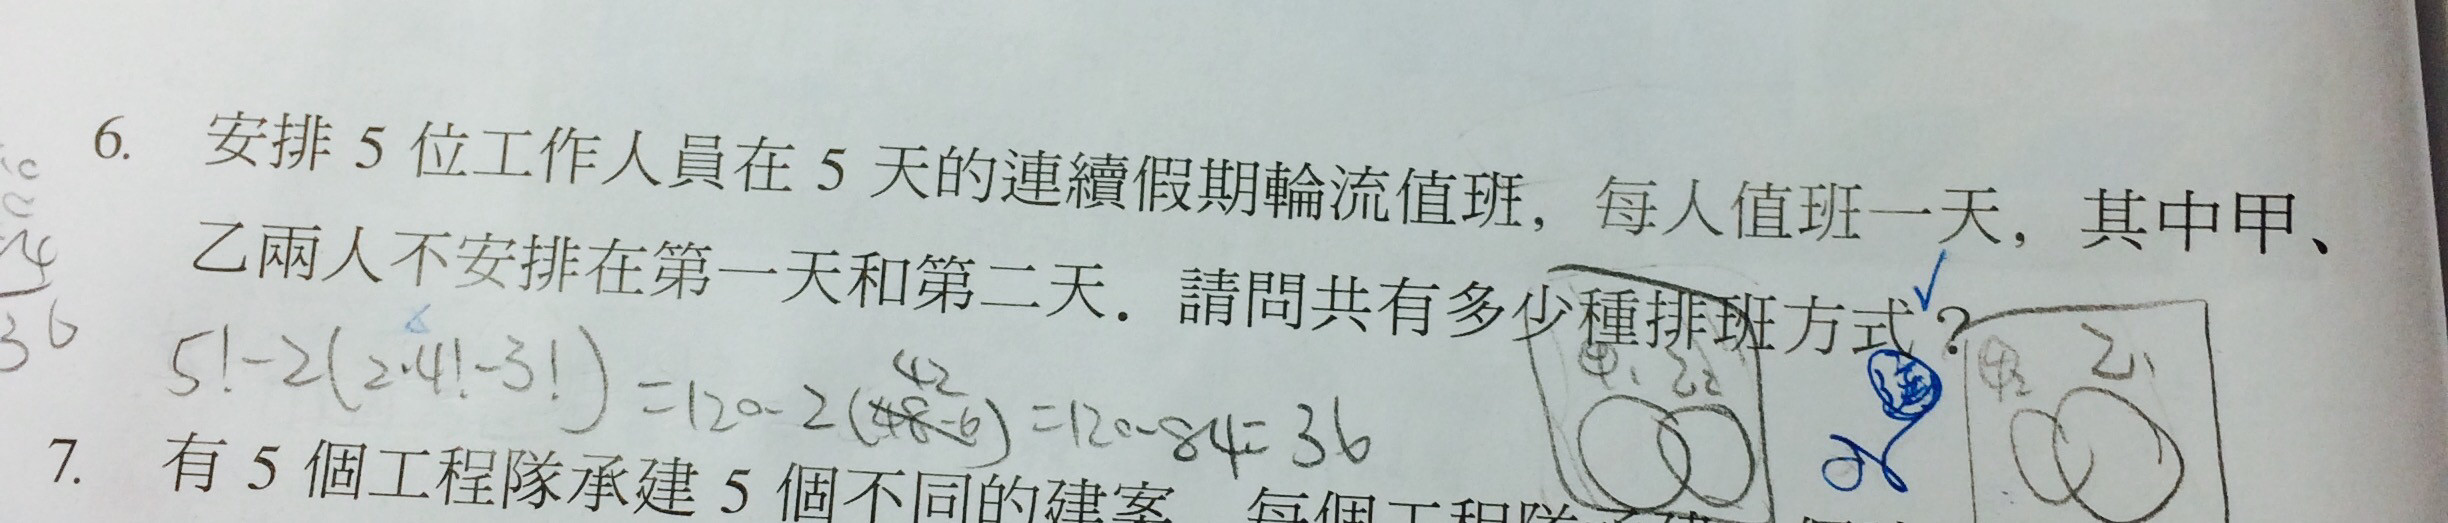 6. 安排 5 位工作人員在 5 天的連續假期輪流值班，每人值班一天，其中甲、
乙兩人不安排在第一天和第二天．請問共有多少種排班方式？
36
5!-2(2·4!-3!)=120-2(48-6)=120-84=36
42
甲₁ 乙₂
甲₂ 乙₁
7. 有 5 個工程隊承建 5 個不同的建案